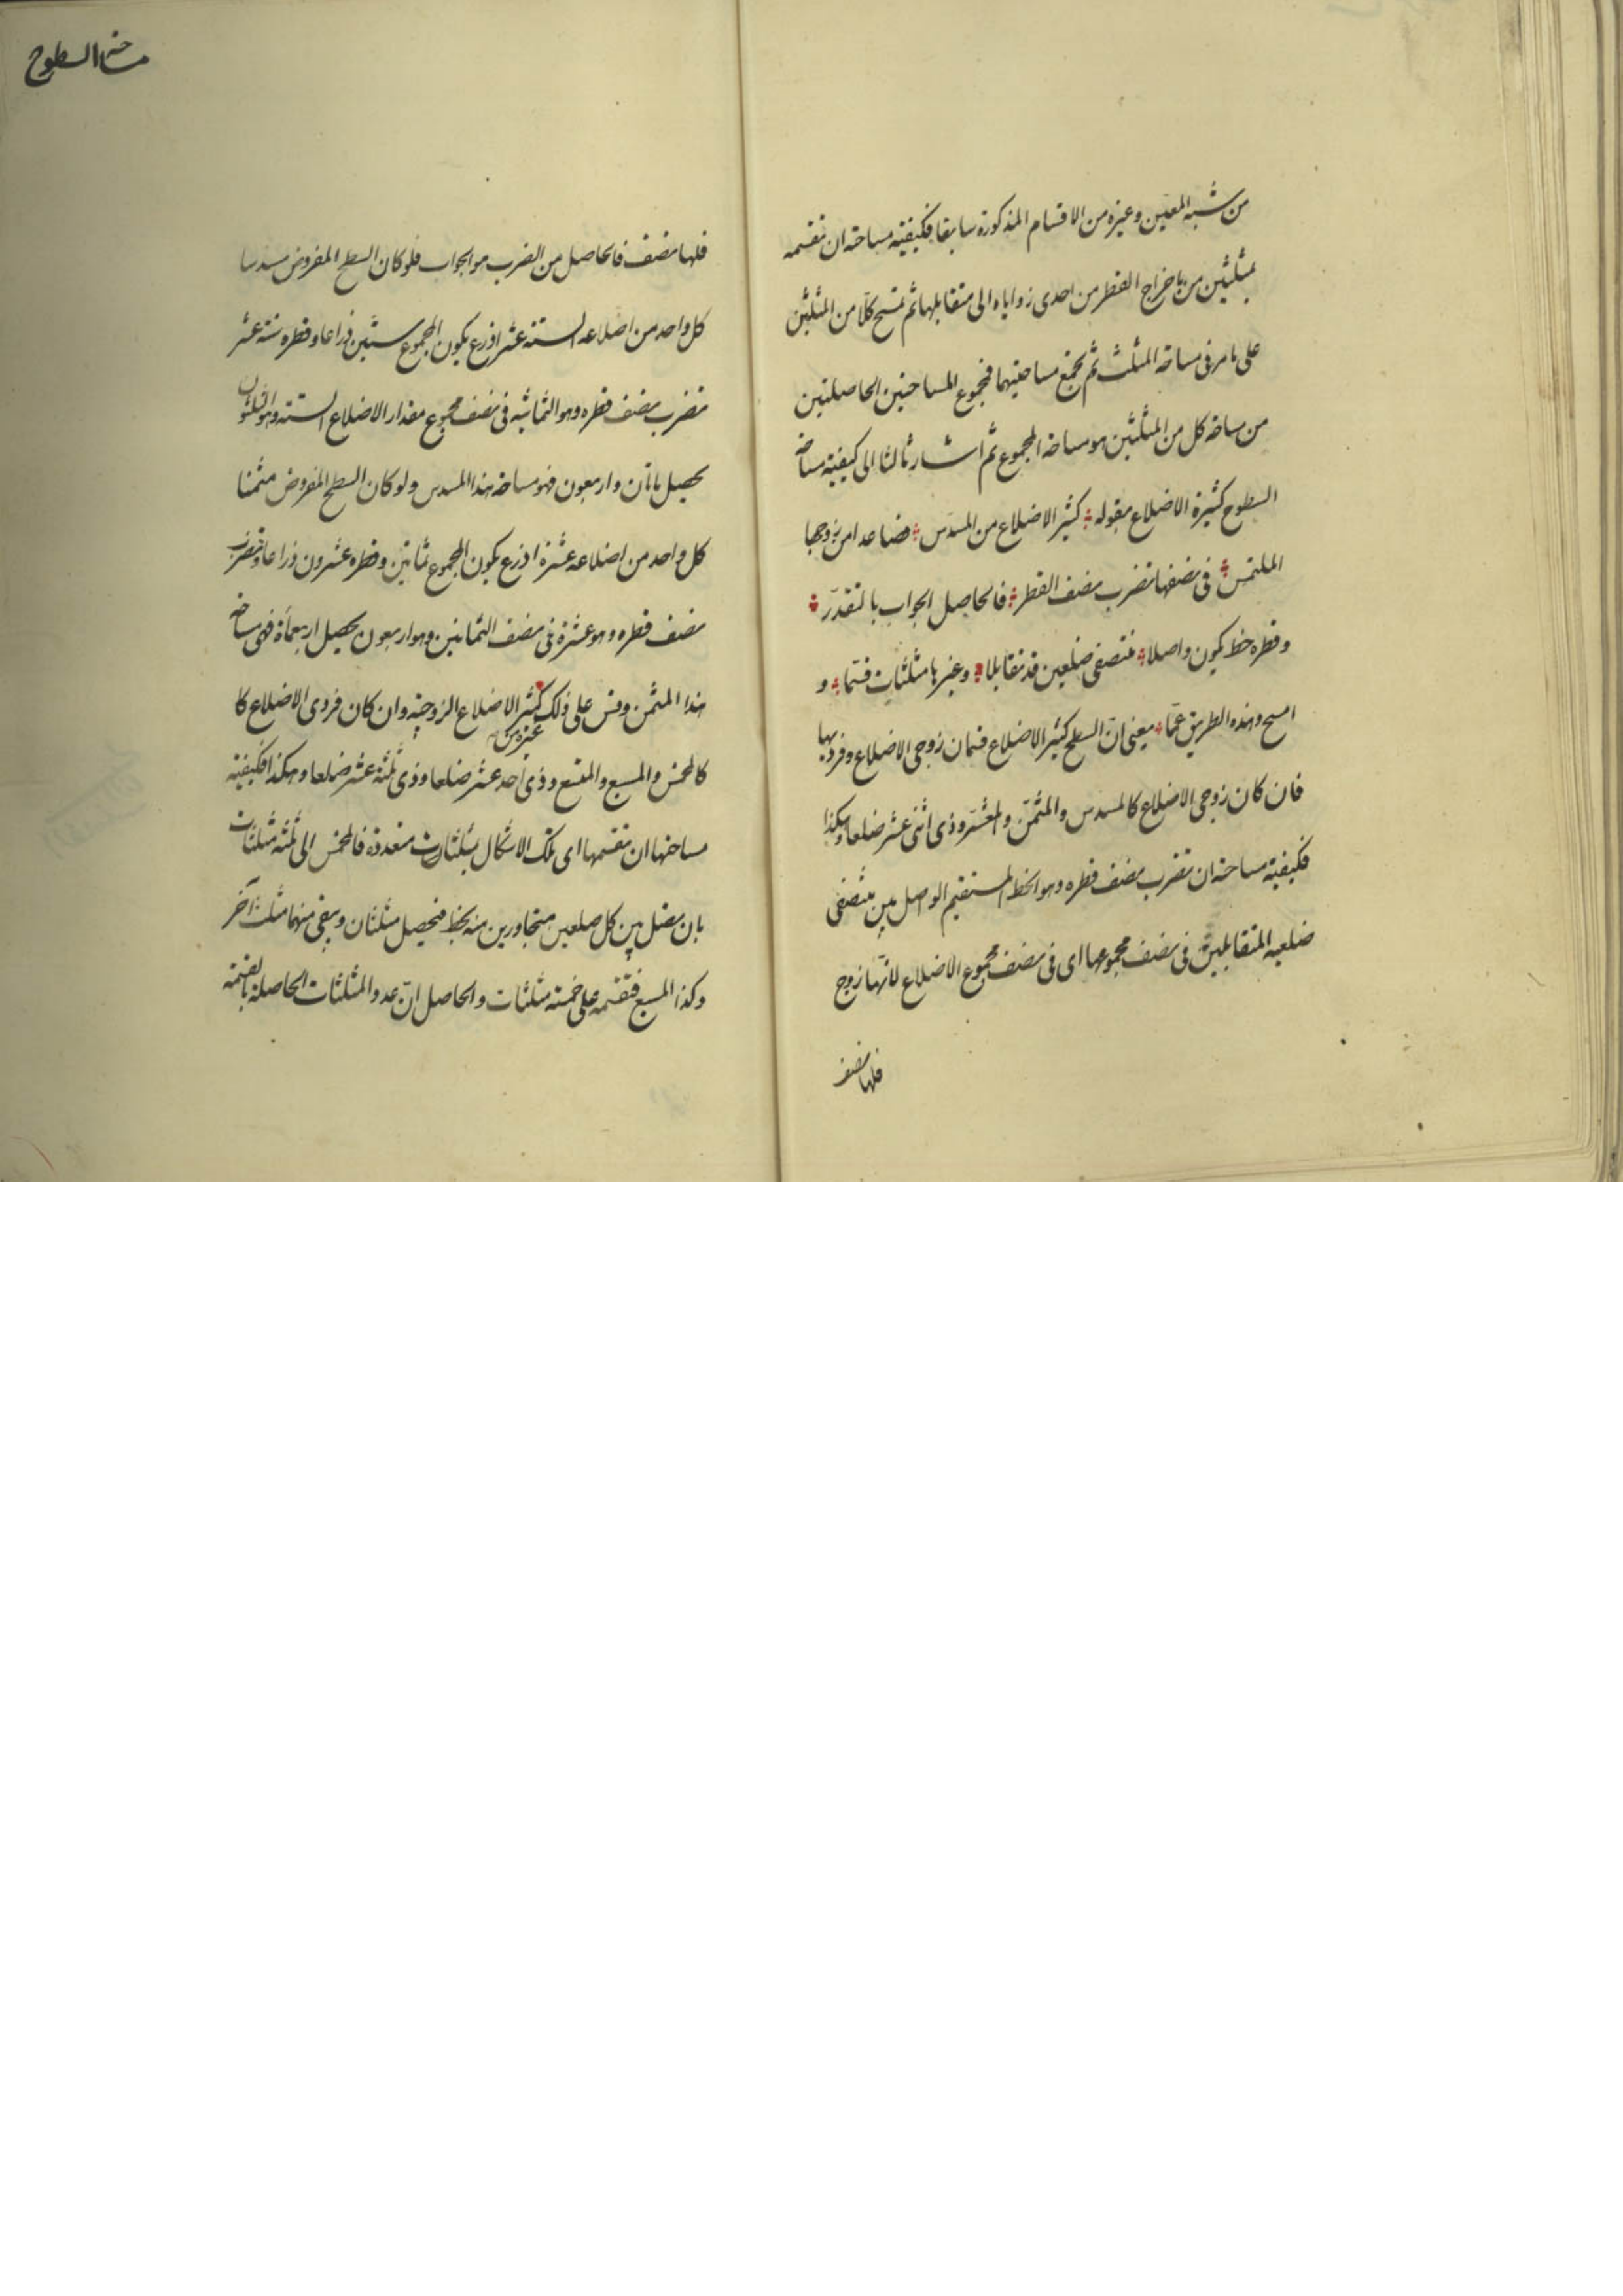 من شبه المعين وغيره من الاقسام المذكورة سابقا فكيفية مساحته ان تقسمه
بمثلثين من باخراج القطر من احدى زواياه الى متقابلها ثم تمسح كلا من المثلثين
على ما مر فى مساحة المثلث ثم تجمع مساحتيهما فمجموع المساحتين الحاصلتين
من مساحة كل من المثلثين هو مساحة المجموع ثم اشار ثالثا الى كيفية مساحة
السطوح كثيرة الاضلاع بقوله كثير الاضلاع من المسدّس فصاعدا من زوجها
الملتمس فى نصفها تضرب نصف القطر فالحاصل الجواب بالتقدّر
وقطره خط يكون واصلا منتصفى ضلعين قد تقابلا وغيرها مثلثات قسّما و
امسح وهذه الطريق عمّا يعنى انّ السطح كثير الاضلاع قسمان زوجى الاضلاع وفرديها
فان كان زوجى الاضلاع كالمسدس والمثمّن والمعشّر وذى اثنى عشر ضلعا وهكذا
فكيفية مساحته ان تضرب نصف قطره وهو الخط المستقيم الواصل بين منتصفى
ضلعيه المتقابلين فى نصف مجموعها اى فى نصف مجموع الاضلاع لانّها زوج
فلها نصف
مساحة السطوح
فلها نصف فالحاصل من الضرب هو الجواب فلو كان السطح المفروض مسدسا
كل واحد من اضلاعه الستة عشر اذرع يكون المجموع ستين ذراعا وقطره ستة عشر
تضرب نصف قطره وهو الثمانية فى نصف مجموع مقدار الاضلاع الستة وهو الثلثون
يحصل ماتان واربعون فهو مساحة هذا المسدس ولو كان السطح المفروض مثمنا
كل واحد من اضلاعه عشرة اذرع يكون المجموع ثمانين وقطره عشرون ذراعا وتضرب
نصف قطره وهو عشرة فى نصف الثمانين وهو اربعون يحصل اربعمأة فهى مساحة
هذا المثمن وقس على ذلك غيره من كثير الاضلاع الزوجية وان كان فردى الاضلاع كا
كالمخمس والمسبع والمتسع وذى أحد عشر ضلعا وذى ثلثة عشر ضلعا وهكذا فكيفية
مساحتها ان تقسمها اى تلك الاشكال بثلثات متعددة فالمخمس الى ثلثة مثلثات
بان يصل بين كل ضلعين متجاورين منه بخط فيحصل مثلثان ويبقى منهما مثلث آخر
وكذا المسبع فتقسمه على خمسة مثلثات والحاصل انّ عدد المثلثات الحاصلة بالقسمة